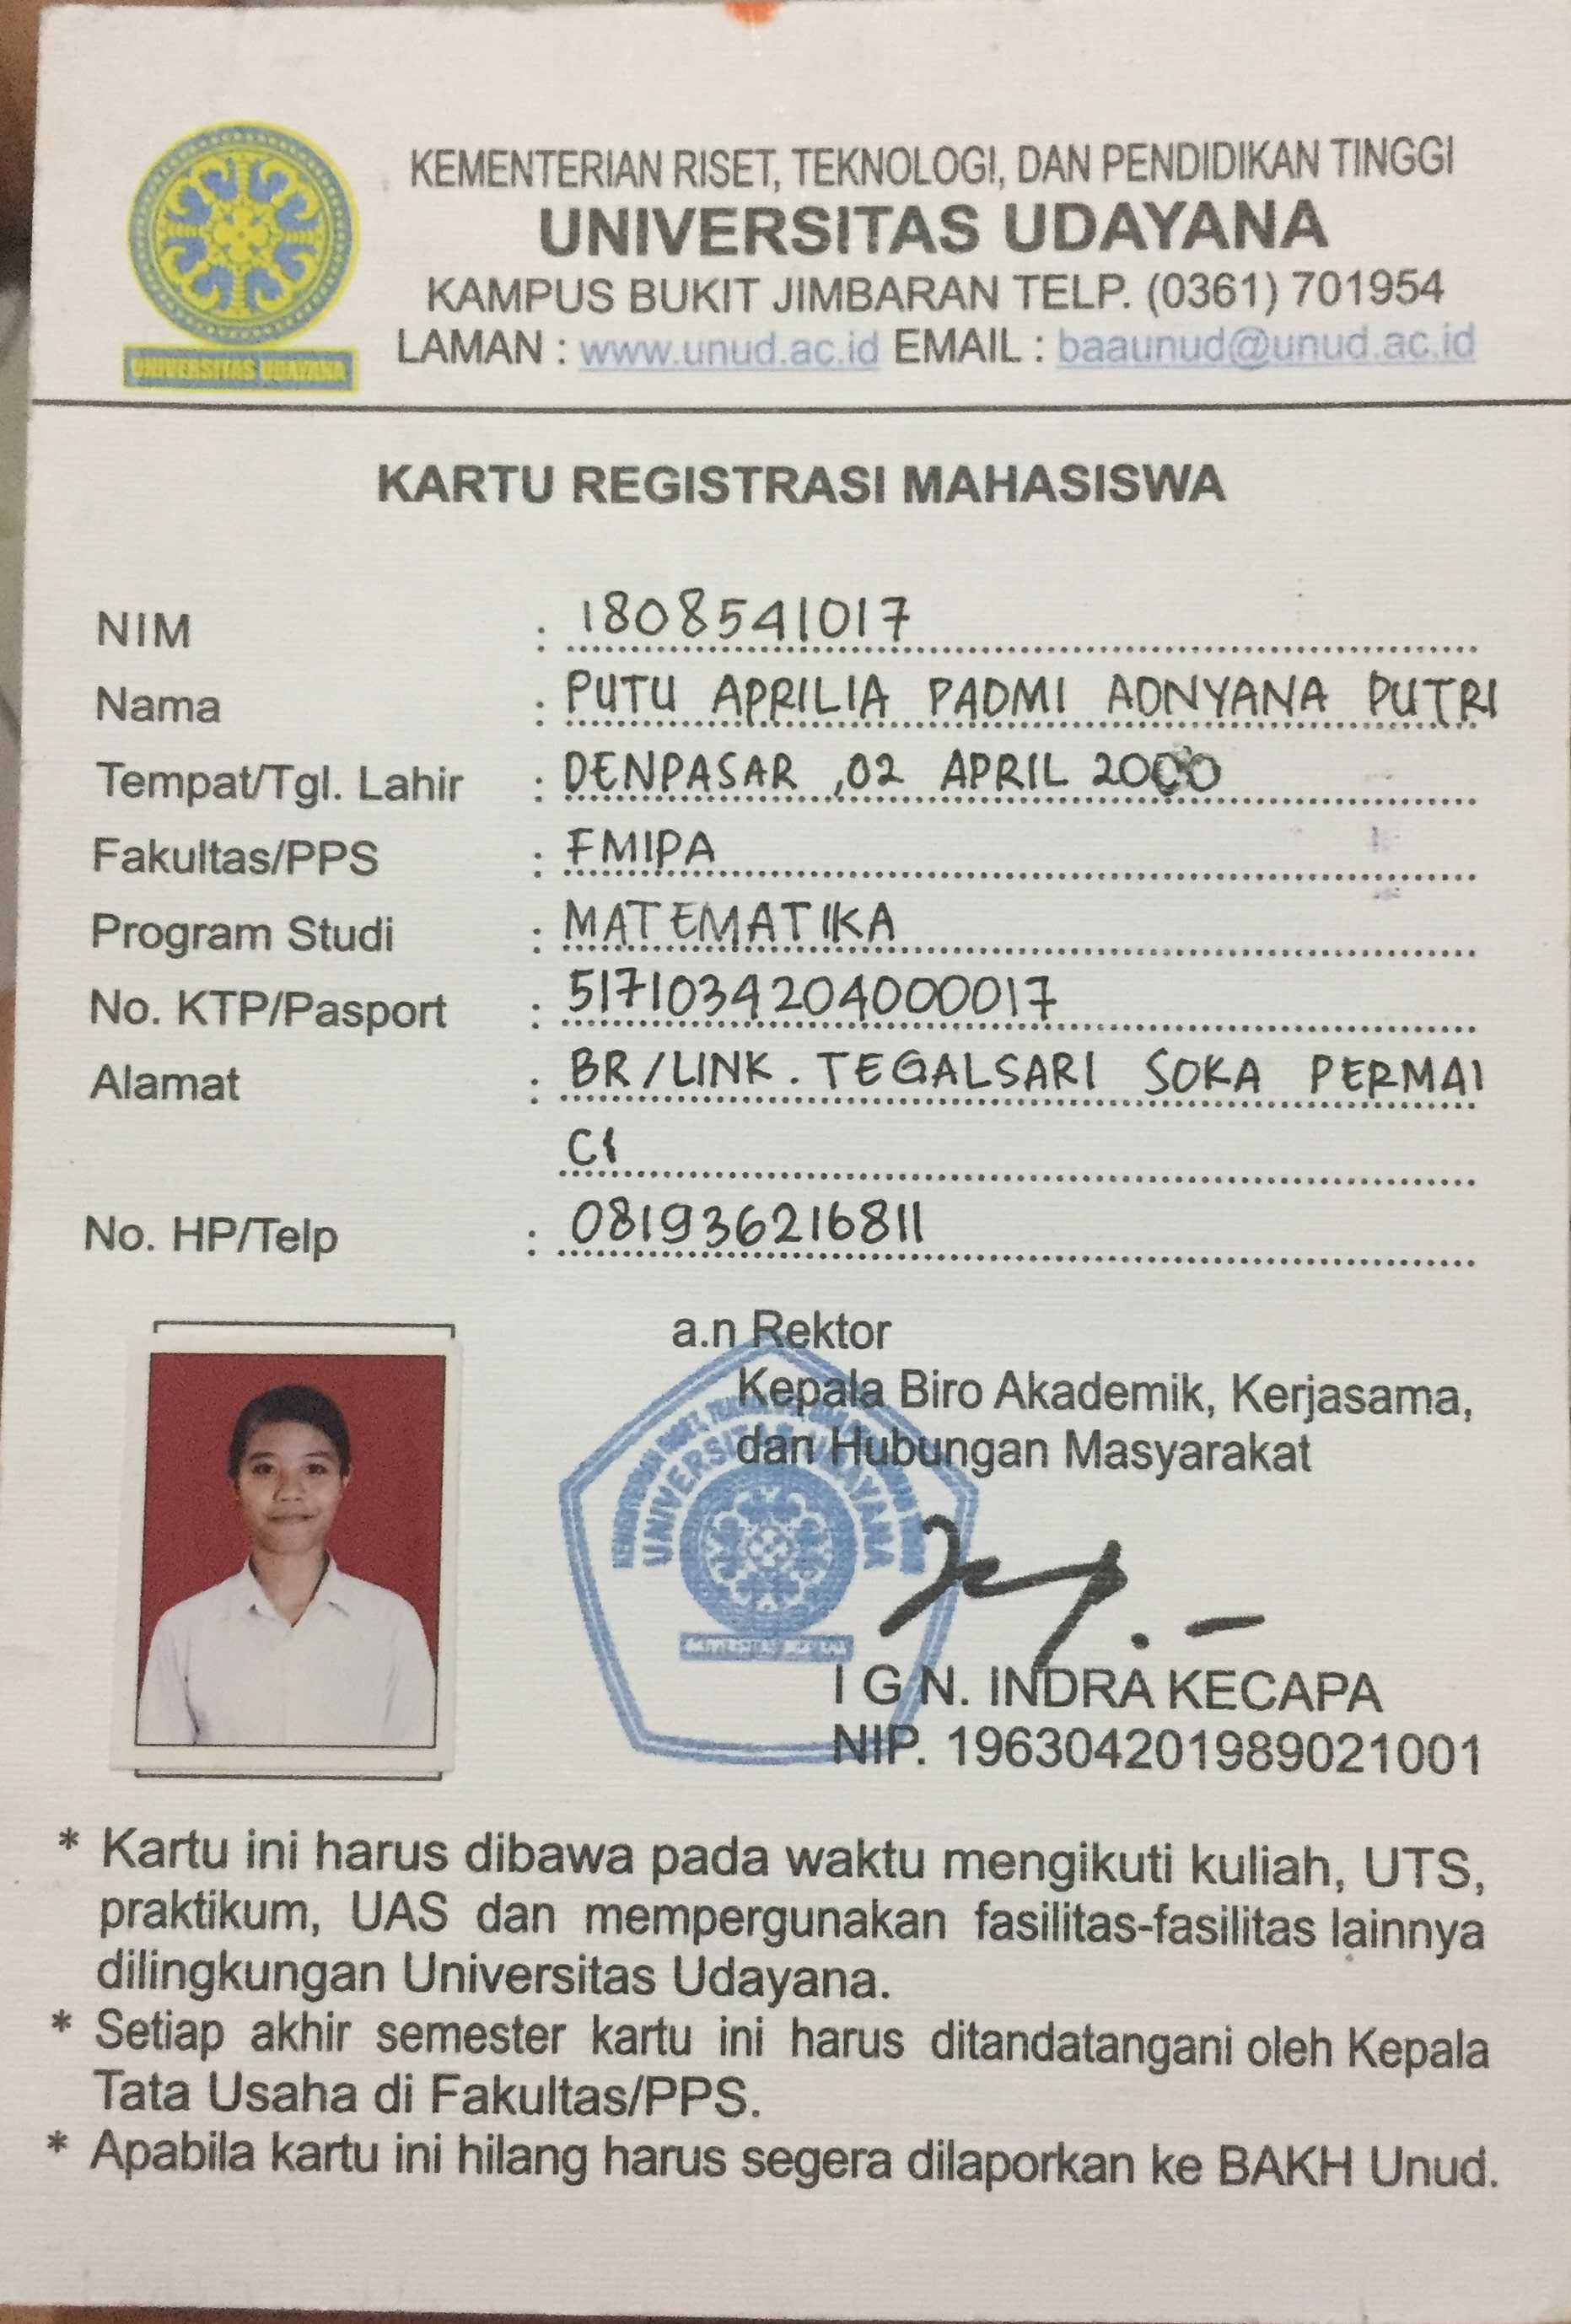 KEMENTERIAN RISET, TEKNOLOGI, DAN PENDIDIKAN TINGGI
UNIVERSITAS UDAYANA
KAMPUS BUKIT JIMBARAN TELP. (0361) 701954
LAMAN : www.unud.ac.id EMAIL : baaunud@unud.ac.id
UNIVERSITAS UDAYANA
KARTU REGISTRASI MAHASISWA
NIM : 1808541017
Nama : PUTU APRILIA PADMI ADNYANA PUTRI
Tempat/Tgl. Lahir : DENPASAR ,02 APRIL 2000
Fakultas/PPS : FMIPA
Program Studi : MATEMATIKA
No. KTP/Pasport : 5171034204000017
Alamat : BR/LINK. TEGALSARI SOKA PERMAI
C1
No. HP/Telp : 081936216811
a.n Rektor
Kepala Biro Akademik, Kerjasama,
dan Hubungan Masyarakat
UNIVERSITAS UDAYANA
I G N. INDRA KECAPA
NIP. 196304201989021001
* Kartu ini harus dibawa pada waktu mengikuti kuliah, UTS,
praktikum, UAS dan mempergunakan fasilitas-fasilitas lainnya
dilingkungan Universitas Udayana.
* Setiap akhir semester kartu ini harus ditandatangani oleh Kepala
Tata Usaha di Fakultas/PPS.
* Apabila kartu ini hilang harus segera dilaporkan ke BAKH Unud.